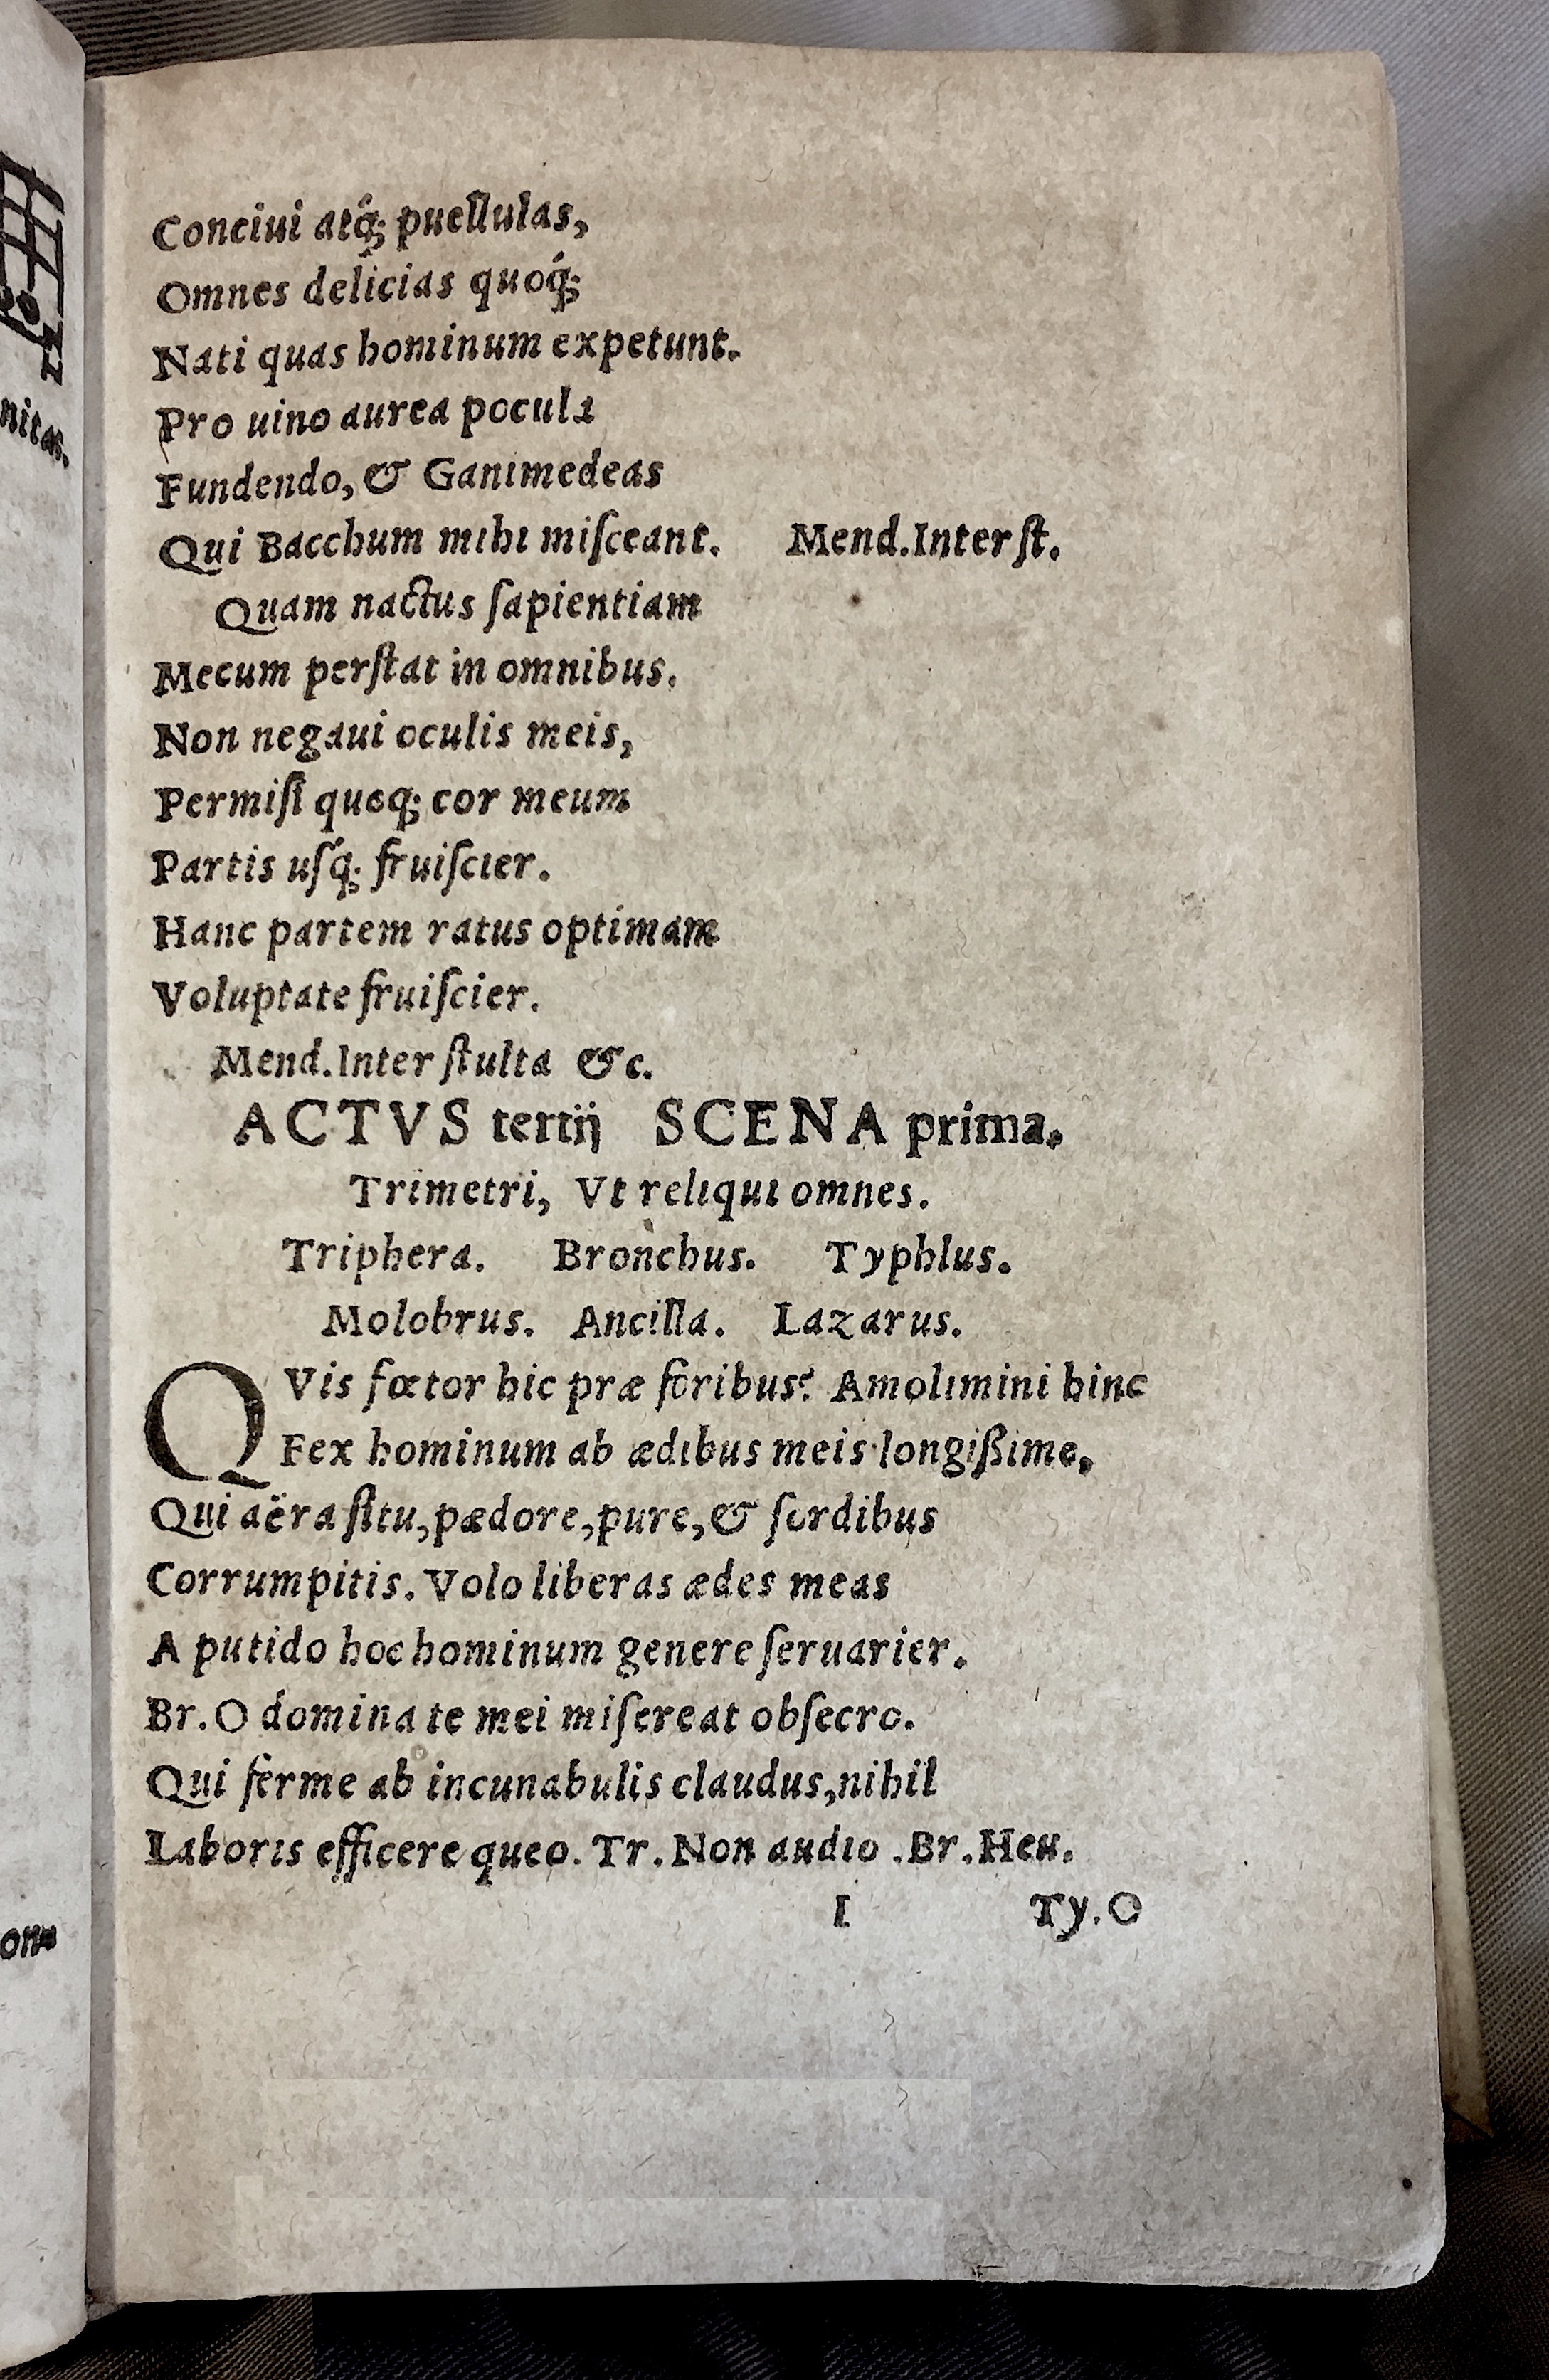 Conciui atq́; puellulas,
Omnes delicias quoq́;
Nati quas hominum expetunt.
Pro uino aurea pocula
Fundendo, & Ganimedeas
Qui Bacchum mihi miſceant. Mend.Inter ſt.
Quam nactus ſapientiam
Mecum perſtat in omnibus.
Non negaui oculis meis,
Permiſi quoq; cor meum
Partis uſq́; fruiſcier.
Hanc partem ratus optimam
Voluptate fruiſcier.
Mend.Inter ſtulta &c.
ACTVS tertij SCENA prima.
Trimetri, Vt reliqui omnes.
Triphera. Bronchus. Typhlus.
Molobrus. Ancilla. Lazarus.
QVis fœtor hic præ foribus? Amolimini hinc
Fex hominum ab ædibus meis longißime,
Qui aëra ſitu, pædore, pure, & ſordibus
Corrumpitis. Volo liberas ædes meas
A putido hoc hominum genere ſeruarier.
Br. O domina te mei miſereat obſecro.
Qui ferme ab incunabulis claudus, nihil
Laboris efficere queo. Tr. Non audio . Br. Heu.
I Ty. O
nitas.
on=